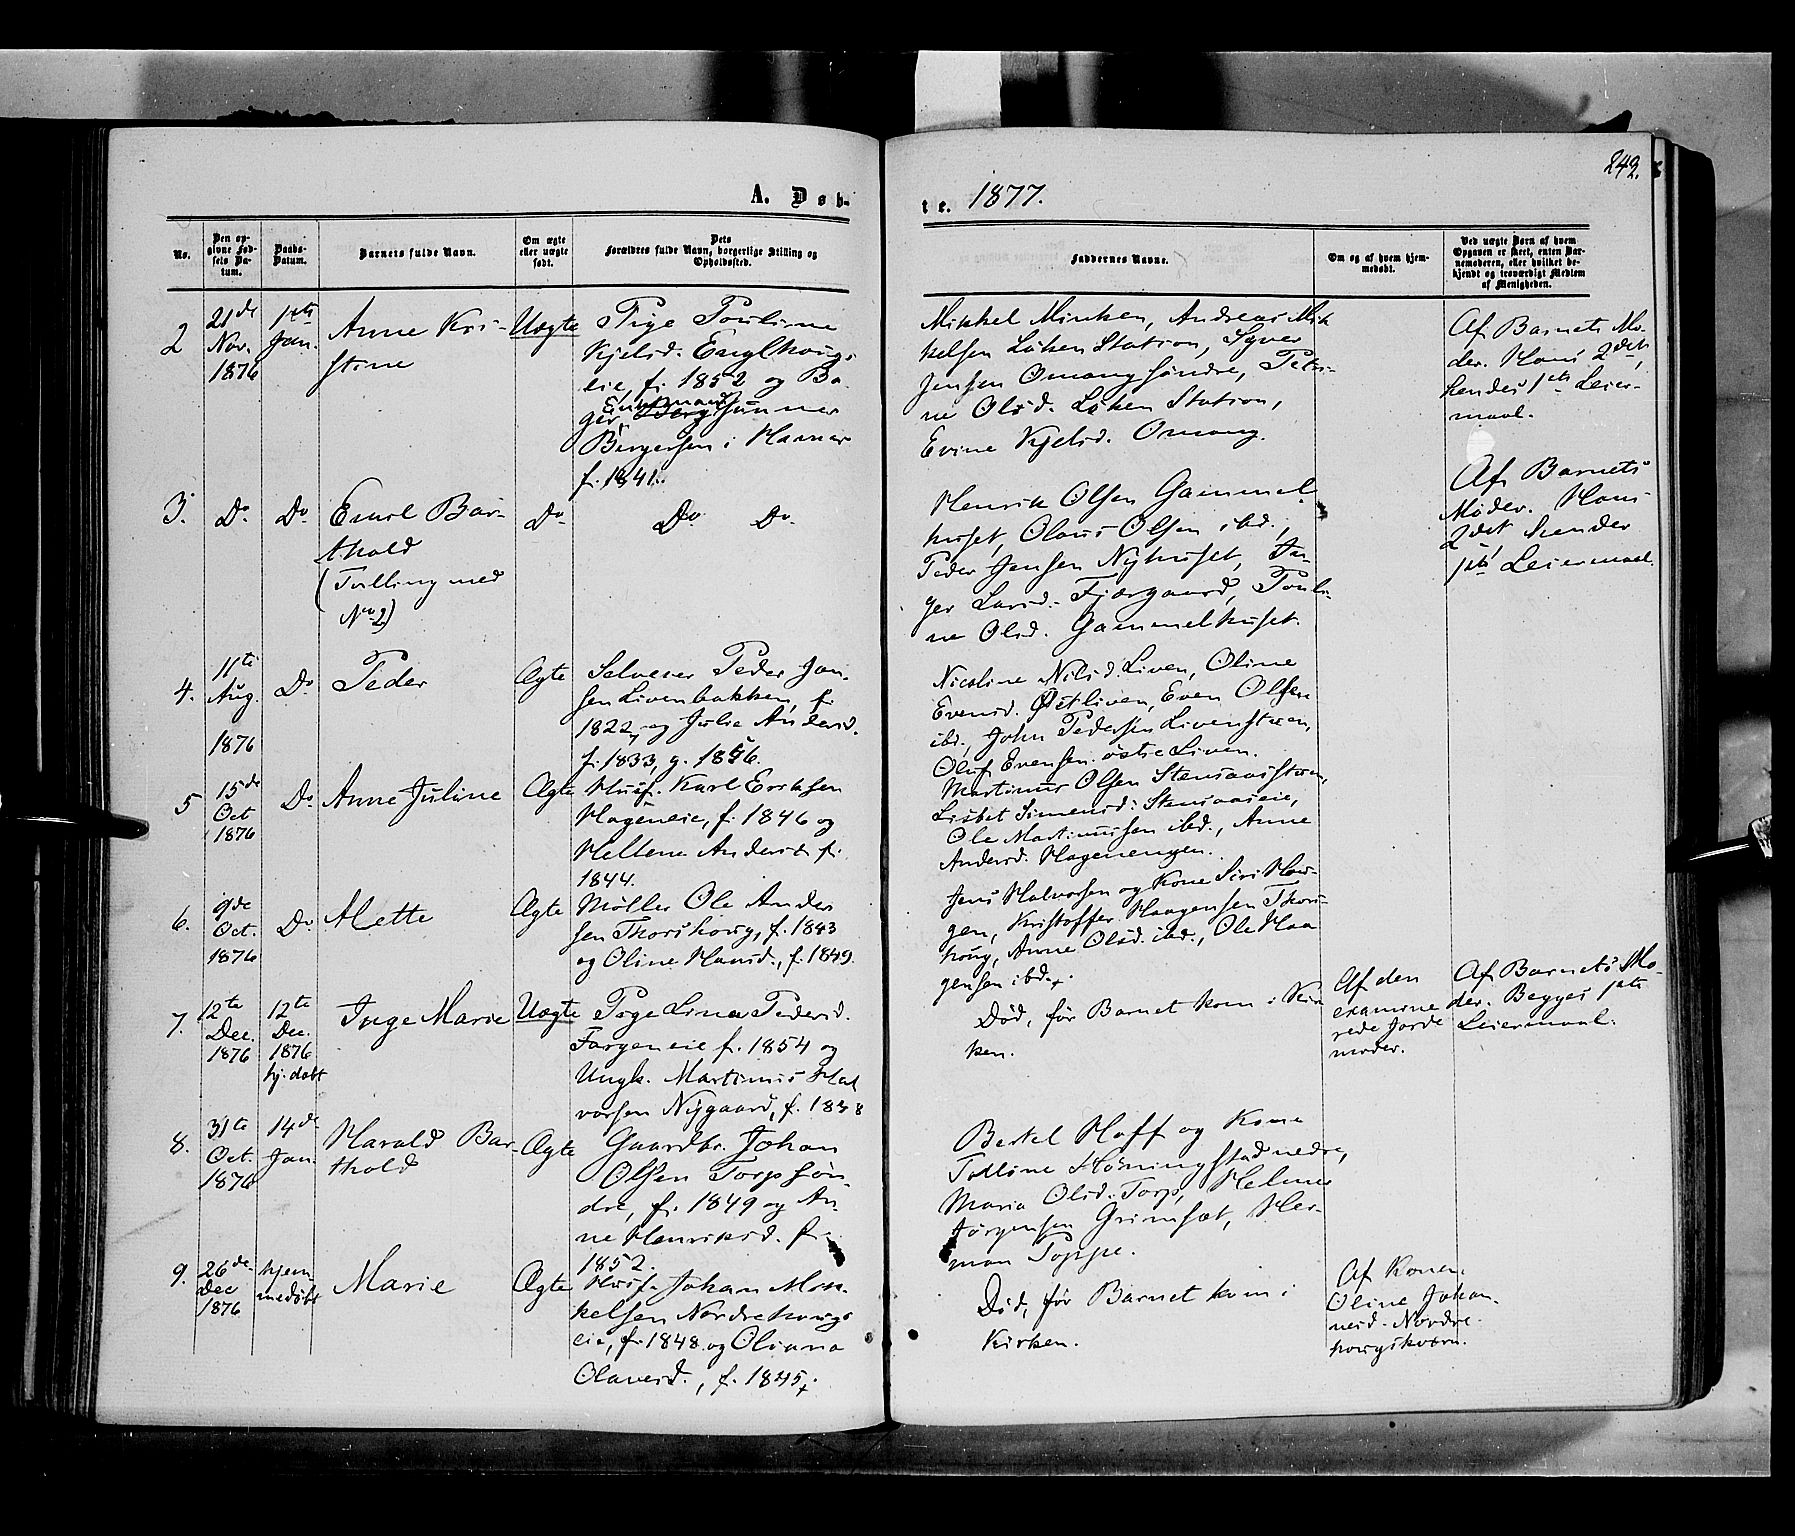 242.
A. Døb-
te. 1877.
No.
Den op-
givne Fød-
sels Da-
tum.
Daabs-
Datum.
Barnets fulde Navn.
Om ægte
eller uægte
født.
Dets
Forældres fulde Navn, borgerlige Stilling og
Opholdssted.
Faddernes Navne.
Om og af hvem hjem-
medøbt.
Ved uægte Børn af hvem
Opgaven er skeet, enten Bar-
nemoderen, eller hvilket be-
kjendt og troværdigt Medlem
af Menigheden.
2
21de
Nov.
1876
1ste
Jan.
Anne Kri-
stine
Uægte
Pige Pouline
Kjelsd. Englhougs
eie, f. 1852 og Ba-
ger, Enkemand Gunner
Bergersen i Hamar
f. 1841.
Mikkel Minken, Andreas Mik
kelsen Løken Station, Syver
Jensen Omang søndre, Petri-
ne Olsd. Løken Station,
Evine Kjelsd. Omang.
Af Barnets Mo-
der. Hans 2det,
hendes 1ste Leier-
maal.
3.
Do
Do
Emil Bar-
thold
(Tvilling med
No 2)
Do
Do Do
Henrik Olsen Gammel
huset, Olaus Olsen ibd.,
Peder Jensen Nyhuset, In-
ger Larsd. Fjærgaard, Pouli-
ne Olsd. Gammelhuset.
Af Barnets
Moder. Hans
2det, hendes
1ste Leiermaal.
4.
11te
Aug.
1876
Do
Peder
Ægte
Selveier Peder Jon-
sen Livenbakken, f.
1822, og Julie Andersd.
f. 1833, g. 1856.
Nicoline Nilsd. Liven, Oline
Evensd. Østliven, Even Olsen
ibd., John Pedersen Livenstuen,
Oluf Evensen østre Liven.
5
15de
Oct
1876
Do
Anne Juline
Ægte
Husf. Karl Eriksen
Hageneie, f. 1846 og
Hellene Andersd. f.
1844.
Martinus Olsen Stensaasstuen,
Lisbet Simensd. Stensaaseie,
Ole Martinussen ibd., Anne
Andersd. Hagenengen.
6.
9de
Oct.
1876
Do
Mette
Ægte
Møller Ole Ander
sen Thorshoug, f. 1843
og Oline Hansd., f. 1849.
Jens Halvorsen og Kone Siri Hau-
gen, Kristoffer Haagensen Thors-
houg, Anne Olsd. ibd., Ole Haa
gensen ibd.
7.
12te
Dec.
1876
12te
Dec.
1876
hj. døbt
Inge Marie
Uægte
Pige Lina Pedersd.
Fargeneie f. 1854 og
Ungk. Martinus Hal
vorsen Nygaard, f. 1848
Død, før Barnet kom i Kir
ken.
Af den
examine
rede Jorde
moder.
Af Barnets Mo-
der. Begges 1ste
Leiermaal.
8.
31te
Oct.
1876
14de
Jan.
Harald Bar-
thold
Ægte
Gaardbr. Johan
Olsen Torp søn-
dre, f. 1849 og An-
ne Henriksd. f.
1852.
Bertel Hoff og Kone
Tolline Hørningstad nedre,
Maria Olsd. Torp, Helmer
Jørgensen Grimset, Her-
man Toppe.
9.
26de
Dec
1876
hjem-
medøbt
Marie
Ægte
Husf. Johan Mik
kelsen Nordrehougs
eie, f. 1848 og Oliana
Olavesd., f. 1845.
Død, før Barnet kom i
Kirken.
Af Konen
Oline Johan-
nesd. Nordre-
hougskvern.